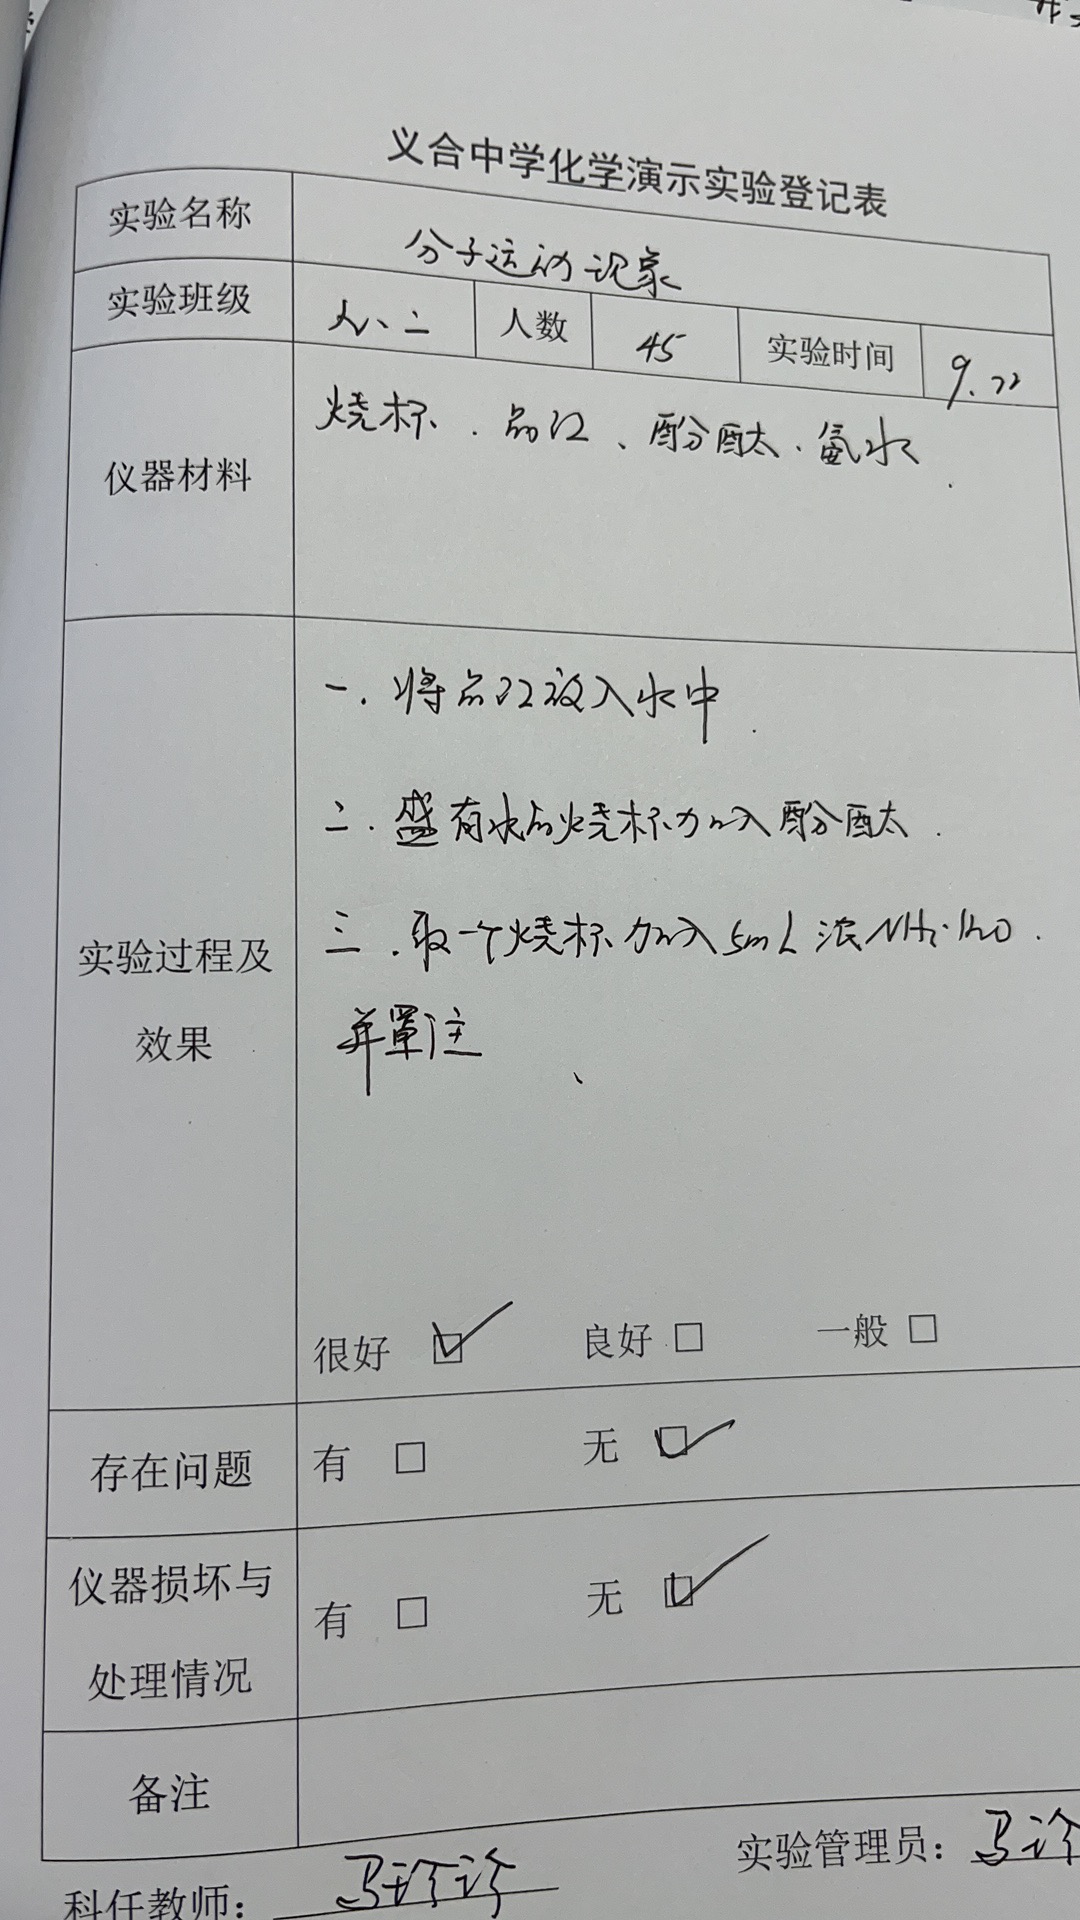 义合中学化学演示实验登记表
实验名称 分子运动现象
实验班级 九、二 人数 45 实验时间 9.22
仪器材料 烧杯、品红、酚酞、氨水
一.将品红放入水中
二.盛有水的烧杯加入酚酞.
实验过程及 三.取一个烧杯加入5mL浓NH3·H2O.
效果 并罩住
很好 ☑ 良好 □ 一般 □
存在问题 有 □ 无 ☑
仪器损坏与
有 □ 无 ☑
处理情况
备注
科任教师: 实验管理员: